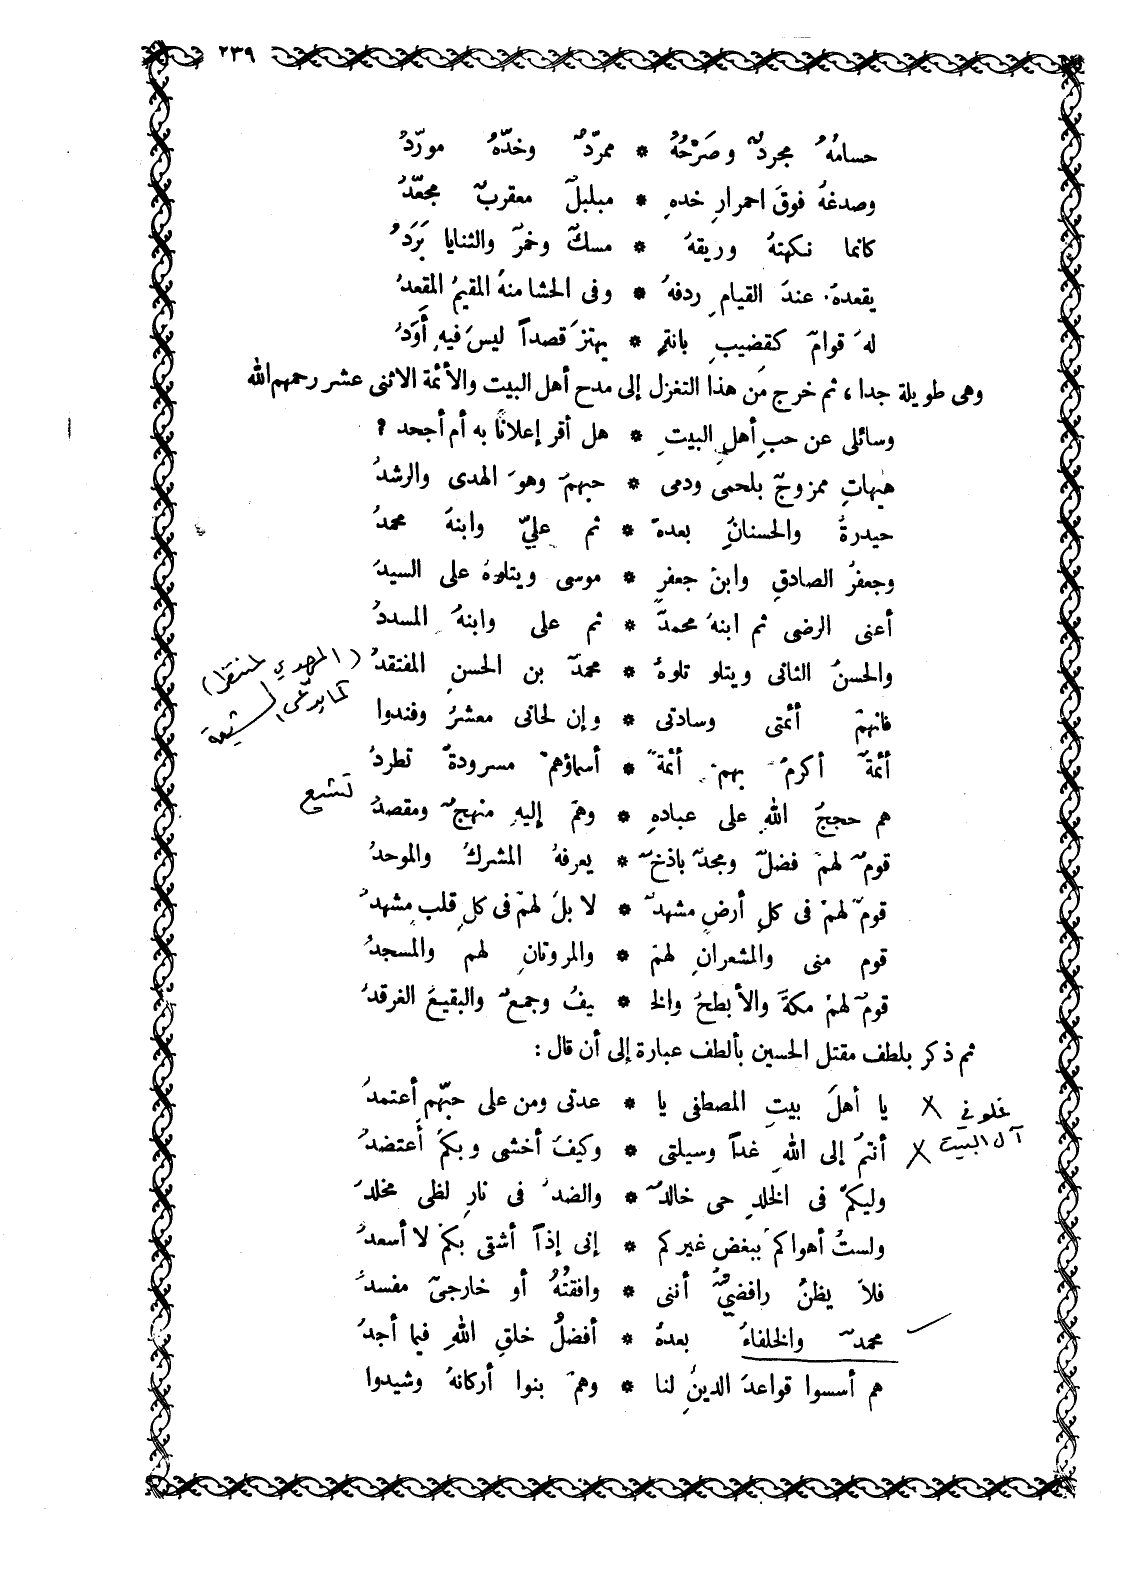 ٢٣٩
حسامُهُ مجردٌ وصَرْحُهُ * ممرّدٌ وخدّهُ مورّدُ
وصدغهُ فوقَ احمرارِ خدهِ * مبلبلٌ معقربٌ مجعّدُ
كانما نكهتهُ وريقهُ * مسكٌ وخمرٌ والثنايا بَرَدُ
يقعدهُ عندَ القيامِ ردفهُ * وفى الحشا منهُ المقيمُ المقعدُ
لهَ قوامٌ كقضيبِ بانةٍ * يهتزَ قصداً ليسَ فيهِ أوَدُ
وهى طويلة جدا ، ثم خرج من هذا التغزل إلى مدح أهل البيت والأئمة الاثنى عشر رحمهم الله
وسائلى عن حبِ أهلِ البيتِ * هل أقر إعلانًا به أم أجحد ؟
هيهاتِ ممزوجٌ بلحمى ودمى * حبهمُ وهوَ الهدى والرشدُ
حيدرةُ والحسنانِ بعدهُ * ثم عليّ وابنهُ محمدُ
وجعفرُ الصادقِ وابنُ جعفرٍ * موسى ويتلوهُ على السيدَ
أعنى الرضى ثم ابنهُ محمدٌ * ثم على وابنهُ المسددُ
والحسنُ الثانى ويتلو تلوهُ * محمدٌ بن الحسنِ المفتقدُ (المهدي المنتظر)
كما يدّعي الشيعة
فانهمْ أئمتى وسادتى * وإن لحانى معشرُ وفندوا
أئمةٌ أكرمْ بهمْ أئمةً * أسماؤهمْ مسرودةٌ تطردُ
تشيع
هم حججُ اللهِ على عبادهِ * وهمَ إليهِ منهجٌ ومقصدُ
قومٌ لهمْ فضلٌ ومجدٌ باذخٌ * يعرفهُ المشركُ والموحدُ
قومٌ لهمْ فى كلِ أرضٍ مشهدٌ * لا بلَ لهمْ فى كلِ قلبٍ مشهدُ
قوم منى والمشعرانِ لهمْ * والمروتانِ لهم والمسجدُ
قومٌ لهمْ مكةَ والأبطحُ والخ * يفُ وجمعٌ والبقيعَ الغرقدُ
ثم ذكر بلطف مقتل الحسين بألطف عبارة إلى أن قال :
غلو في X يا أهلَ بيتِ المصطفى يا * عدتى ومن على حبّهمِ أعتمدُ
آل البيت X أنتمُ إلى اللهِ غداً وسيلتى * وكيفَ أخشى وبكمَ أعتضدُ
وليكمْ فى الخلدِ حى خالدٌ * والضدُ فى نارِ لظى مخلدَ
ولستُ أهواكمْ ببغضِ غيركم * إنى إذاً أشقى بكمْ لا أسعدُ
فلا يظنُ رافضيٌ أننى * وافقتُهُ أو خارجىٌ مفسدُ
محمدٌ والخلفاءُ بعدهُ * أفضلُ خلقِ اللهِ فيما أجدُ
هم أسسوا قواعدَ الدينِ لنا * وهمْ بنوا أركانهُ وشيدوا